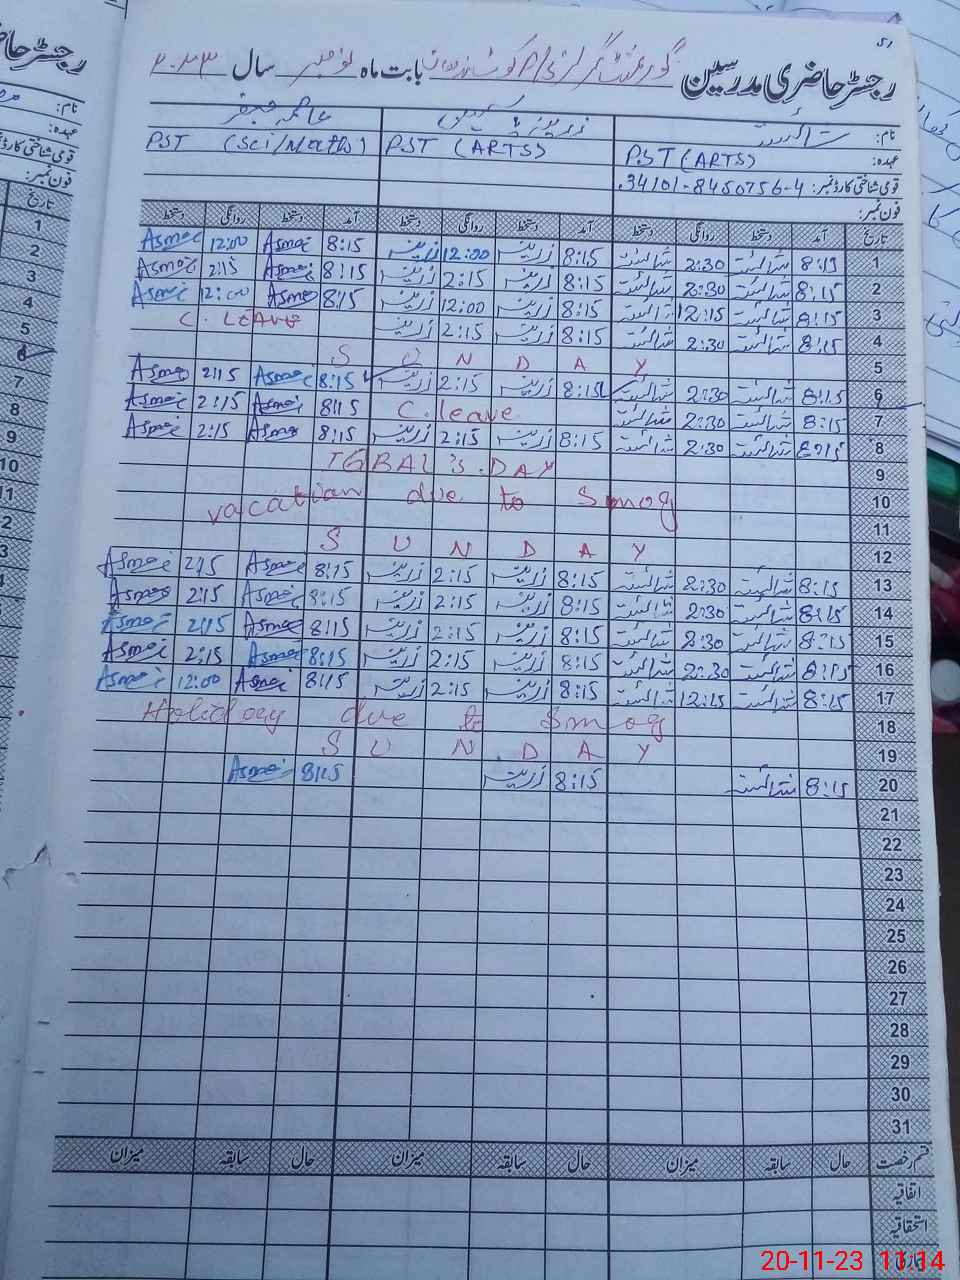 51
رجسٹر حاضری مدرسین گورنمنٹ گرلز بابت ماہ نومبر سال ۲۰۲۳
نام: شائستہ زرینہ عاصمہ
عہدہ: PST (ARTS) PST (ARTS) PST (Sci/Maths)
قومی شناختی کارڈ نمبر: 34101-8450756-4
فون نمبر:
تاریخ آمد دستخط روانگی دستخط آمد دستخط روانگی دستخط آمد دستخط روانگی دستخط
1 8:15 شائستہ 2:30 شائستہ 8:15 زرینہ 12:00 زرینہ 8:15 Asma 12:00 Asma
2 8:15 شائستہ 2:30 شائستہ 8:15 زرینہ 2:15 زرینہ 8:15 Asma 2:15 Asma
3 8:15 شائستہ 12:15 شائستہ 8:15 زرینہ 12:00 زرینہ 8:15 Asma 12:00 Asma
4 8:15 شائستہ 2:30 شائستہ 8:15 زرینہ 2:15 زرینہ C. LEAVE
5 S U N D A Y
6 8:15 شائستہ 2:30 شائستہ 8:15 زرینہ 2:15 زرینہ 8:15 Asma 2:15 Asma
7 8:15 شائستہ 2:30 شائستہ C. leave 8:15 Asma 2:15 Asma
8 8:15 شائستہ 2:30 شائستہ 8:15 زرینہ 2:15 زرینہ 8:15 Asma 2:15 Asma
9 IQBAL'S DAY
10 vacation due to Smog
11
12 S U N D A Y
13 8:15 شائستہ 2:30 شائستہ 8:15 زرینہ 2:15 زرینہ 8:15 Asma 2:15 Asma
14 8:15 شائستہ 2:30 شائستہ 8:15 زرینہ 2:15 زرینہ 8:15 Asma 2:15 Asma
15 8:15 شائستہ 2:30 شائستہ 8:15 زرینہ 2:15 زرینہ 8:15 Asma 2:15 Asma
16 8:15 شائستہ 2:30 شائستہ 8:15 زرینہ 2:15 زرینہ 8:15 Asma 2:15 Asma
17 8:15 شائستہ 12:15 شائستہ 8:15 زرینہ 2:15 زرینہ 8:15 Asma 12:00 Asma
18 Holiday due to Smog
19 S U N D A Y
20 8:15 شائستہ 8:15 زرینہ 8:15 Asma
21
22
23
24
25
26
27
28
29
30
31
قسم رخصت حال سابقہ میزان حال سابقہ میزان حال سابقہ میزان
اتفاقیہ
استحقاقیہ
20-11-23 11:14